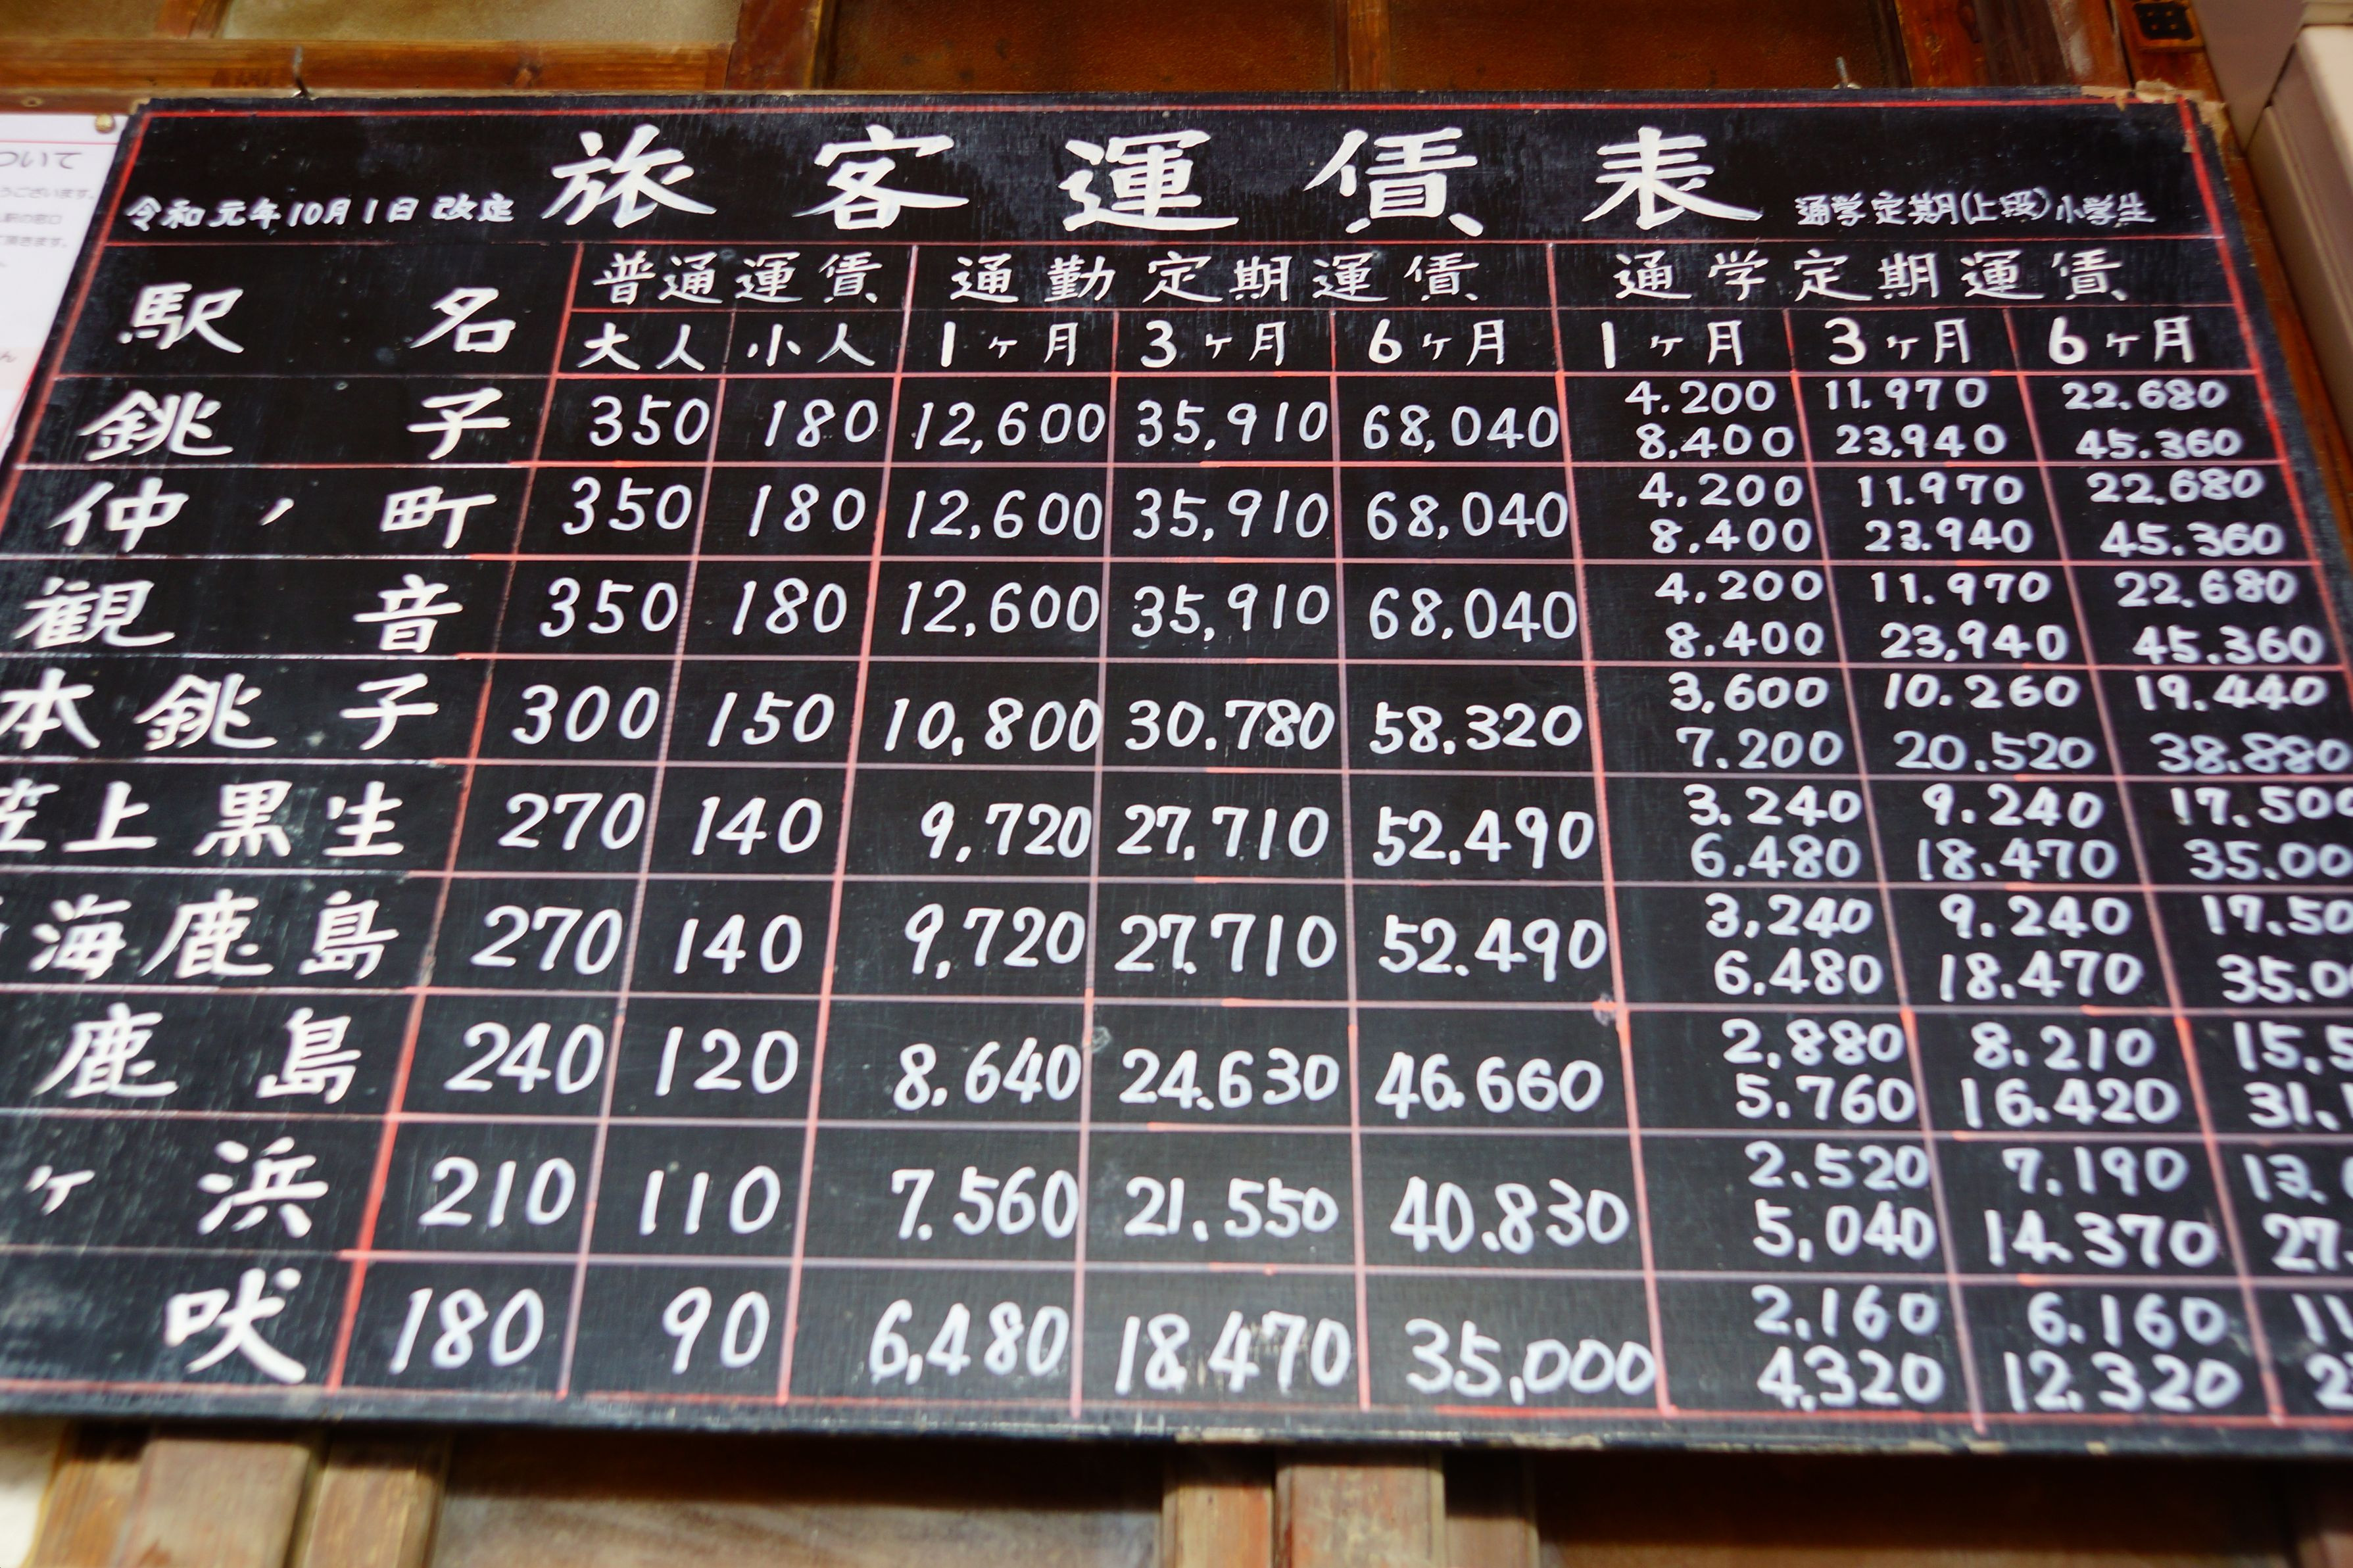 ついて
うございます。
旅客運賃表
令和元年10月1日 改定
通学定期(上段)小学生
駅名 普通運賃 通勤定期運賃 通学定期運賃
大人 小人 1ヶ月 3ヶ月 6ヶ月 1ヶ月 3ヶ月 6ヶ月
銚子 350 180 12,600 35,910 68,040 4.200 11.970 22.680
8.400 23.940 45.360
仲ノ町 350 180 12,600 35,910 68,040 4.200 11.970 22.680
8.400 23.940 45.360
観音 350 180 12,600 35,910 68,040 4,200 11.970 22.680
8.400 23,940 45.360
本銚子 300 150 10,800 30.780 58.320 3,600 10.260 19.440
7.200 20.520 38.880
笠上黒生 270 140 9,720 27.710 52.490 3.240 9.240 17.500
6.480 18.470 35.00
海鹿島 270 140 9,720 27.710 52.490 3,240 9.240 17.50
6.480 18.470 35.0
鹿島 240 120 8.640 24.630 46.660 2.880 8.210 15.5
5.760 16.420 31.1
ヶ浜 210 110 7.560 21.550 40.830 2.520 7.190 13.
5,040 14.370 27.
吠 180 90 6,480 18.470 35,000 2.160 6.160 11
4,320 12.320 2